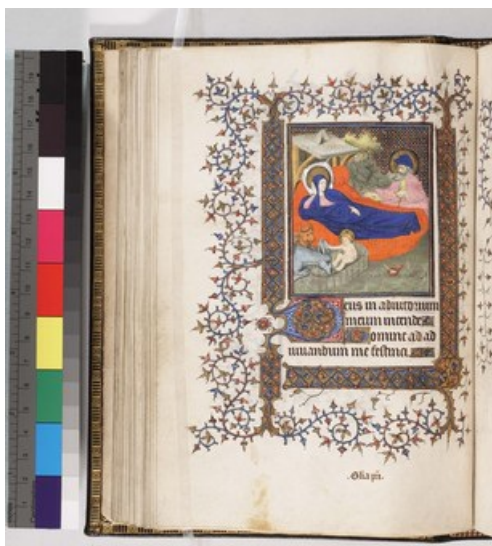 Deus in adiutorium
meum intende
Domine ad ad
iuuandum me festina.
Glia pri.